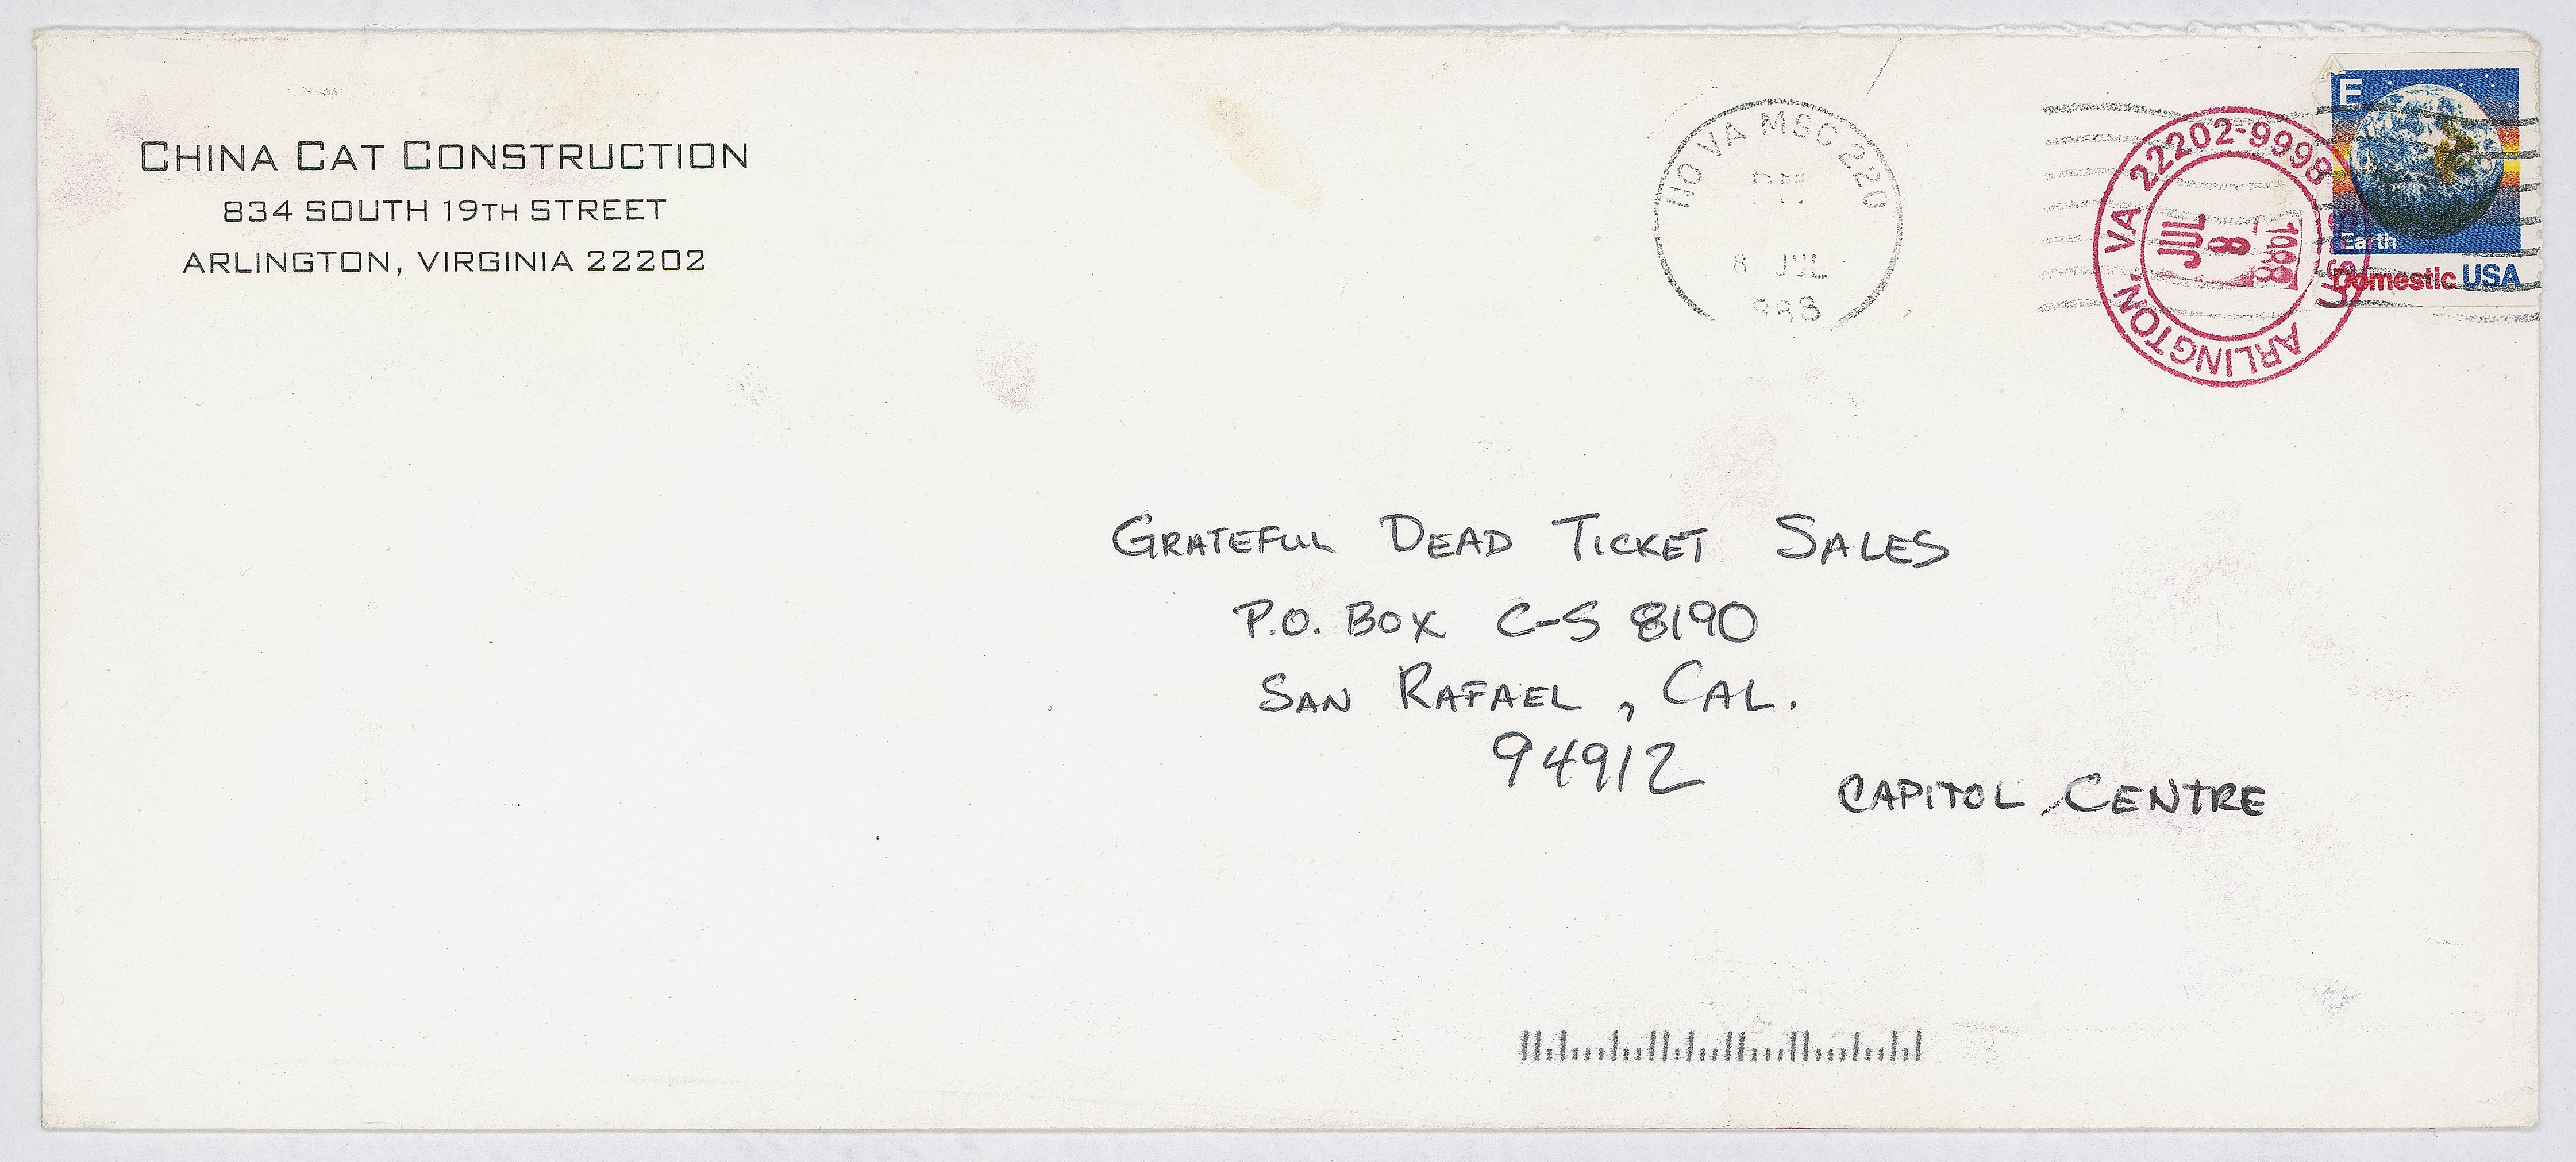 CHINA CAT CONSTRUCTION
834 SOUTH 19TH STREET
ARLINGTON, VIRGINIA 22202
NO VA MSC 220
PM
8 JUL
ARLINGTON, VA 22202-9998
JUL
8
1988
USPS
E
Earth
Domestic USA
GRATEFUL DEAD TICKET SALES
P.O. BOX C-S 8190
SAN RAFAEL, CAL.
94912
CAPITOL CENTRE